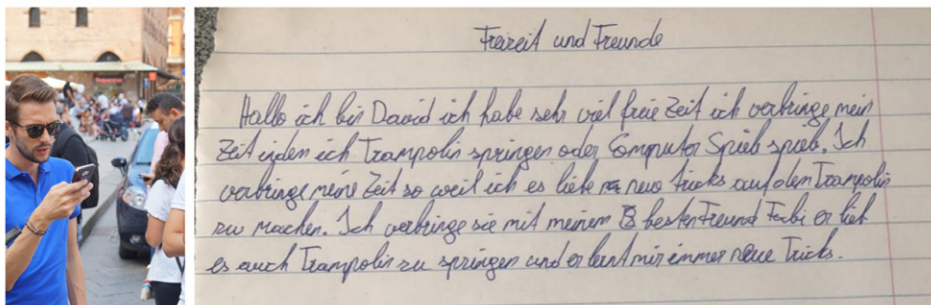 Freizeit und Freunde
Hallo ich bin David ich habe sehr viel freie Zeit ich verbringe mein
Zeit inden ich Trampolin springen oder Computer Spiele spiele. Ich
verbringe meine Zeit so weil ich es liebe neue tricks auf dem Trampolin
zu machen. Ich verbringe sie mit meinem besten Freund Fabi er lieb
es auch Trampolin zu springen und er lernt mir immer neue Tricks.